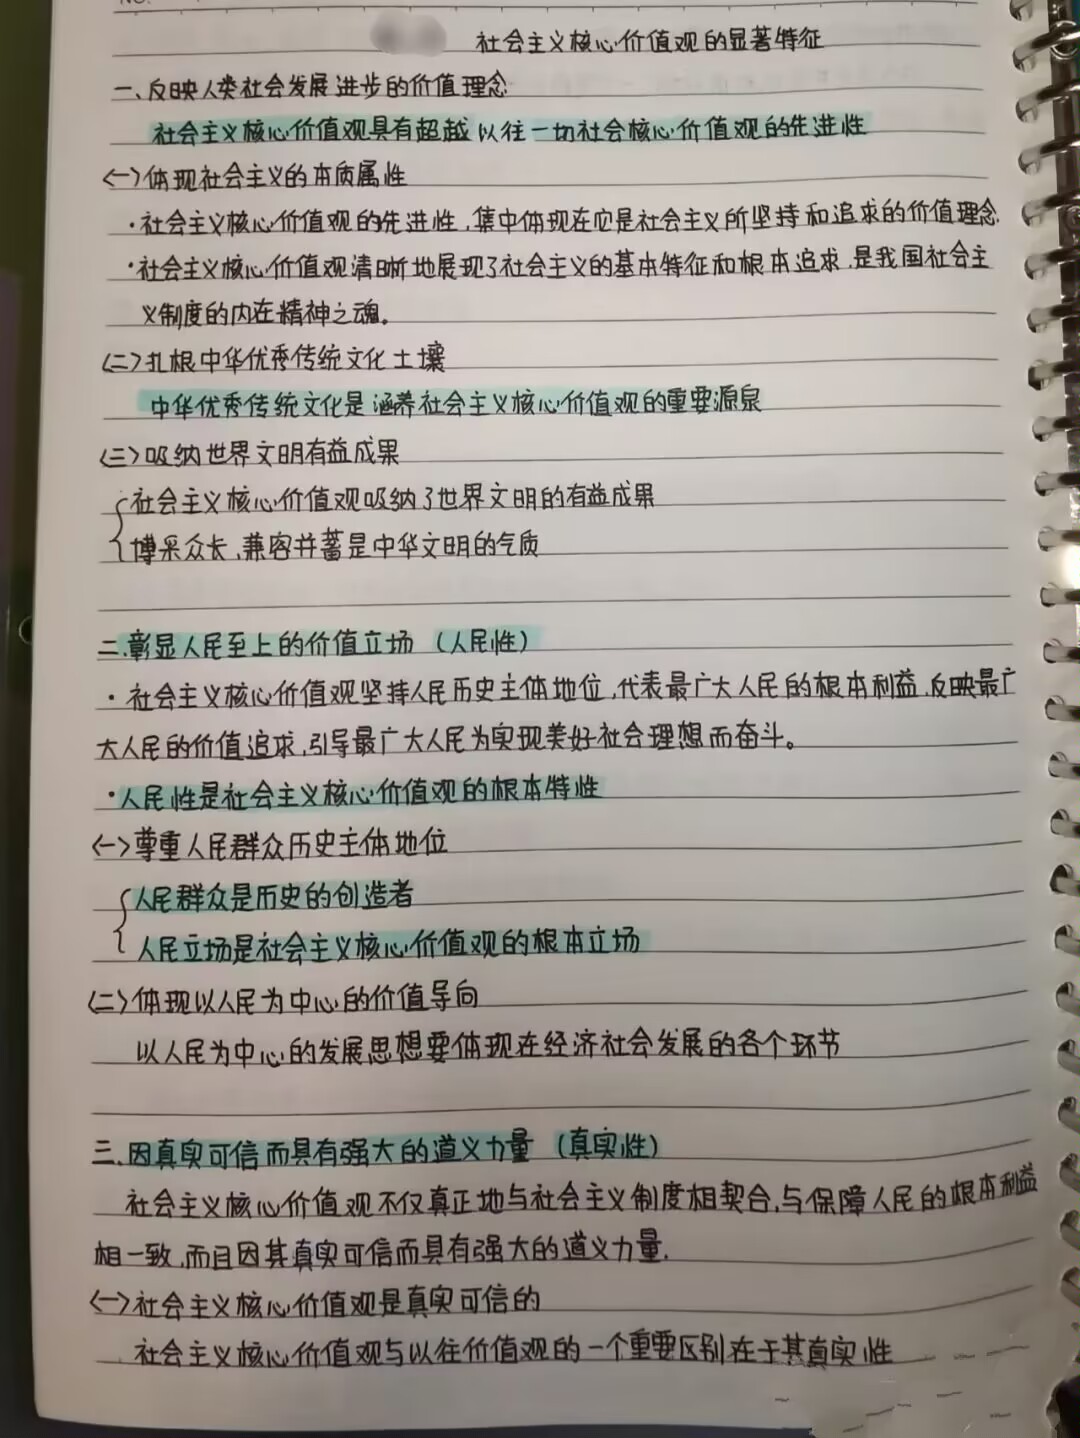 社会主义核心价值观的显著特征
一、反映人类社会发展进步的价值理念
社会主义核心价值观具有超越以往一切社会核心价值观的先进性
<一>体现社会主义的本质属性
·社会主义核心价值观的先进性,集中体现在它是社会主义所坚持和追求的价值理念.
·社会主义核心价值观清晰地展现了社会主义的基本特征和根本追求,是我国社会主
义制度的内在精神之魂。
<二>扎根中华优秀传统文化土壤
中华优秀传统文化是涵养社会主义核心价值观的重要源泉
<三>吸纳世界文明有益成果
社会主义核心价值观吸纳了世界文明的有益成果
博采众长,兼容并蓄是中华文明的气质
二.彰显人民至上的价值立场（人民性）
·社会主义核心价值观坚持人民历史主体地位,代表最广大人民的根本利益,反映最广
大人民的价值追求,引导最广大人民为实现美好社会理想而奋斗。
·人民性是社会主义核心价值观的根本特性
<一>尊重人民群众历史主体地位
人民群众是历史的创造者
人民立场是社会主义核心价值观的根本立场
<二>体现以人民为中心的价值导向
以人民为中心的发展思想要体现在经济社会发展的各个环节
三.因真实可信而具有强大的道义力量（真实性）
社会主义核心价值观不仅真正地与社会主义制度相契合,与保障人民的根本利益
相一致,而且因其真实可信而具有强大的道义力量.
<一>社会主义核心价值观是真实可信的
社会主义核心价值观与以往价值观的一个重要区别在于其真实性